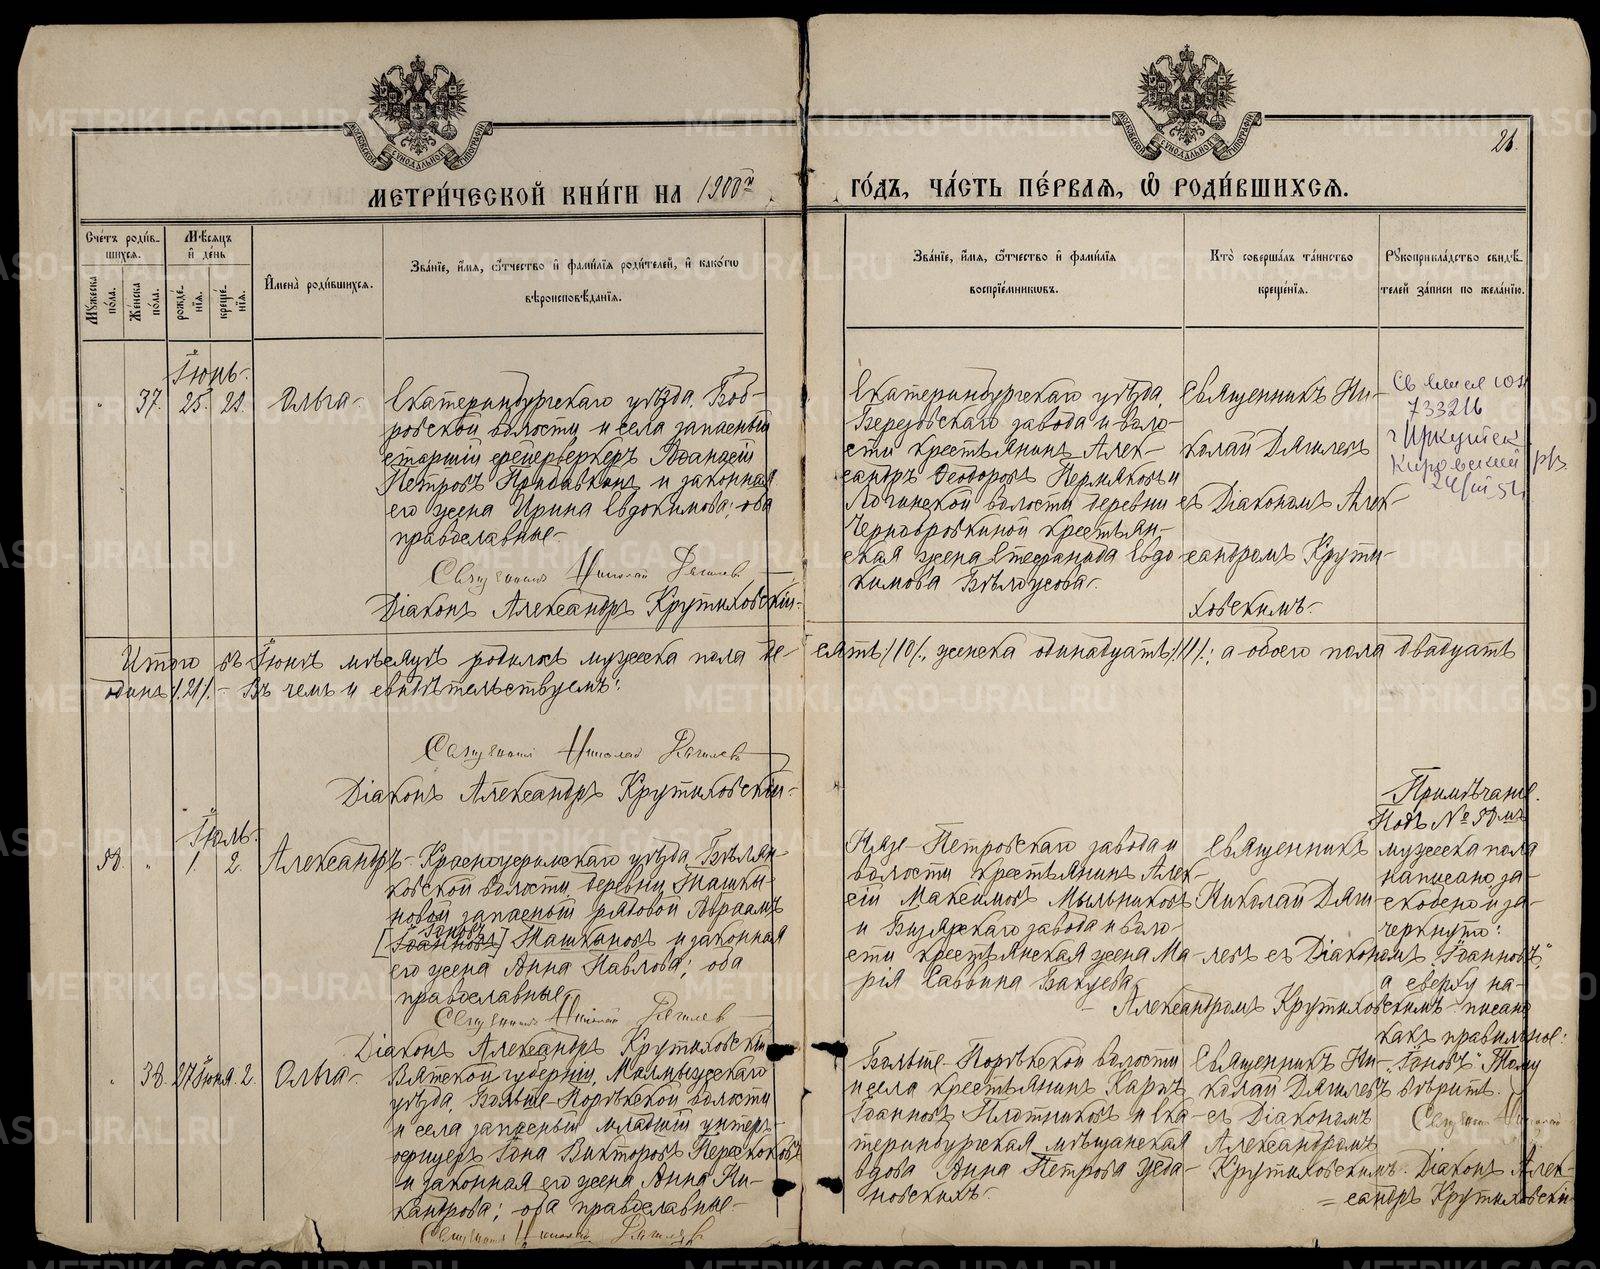 МОСКОВСКОЙ СѴНОДАЛЬНОЙ ТИПОГРАФІИ
МОСКОВСКОЙ СѴНОДАЛЬНОЙ ТИПОГРАФІИ
МЕТРИ́ЧЕСКОЙ КНИ́ГИ НА 1900й
ГО́ДЪ, ЧА́СТЬ ПЕ́РВАѦ, Ѽ РОДИ́ВШИХСѦ.
Сче́тъ роди́в-
шихсѧ.
Мꙋ́жеска
по́ла.
Же́нска
по́ла.
Мѣ́сѧцъ
и҆ де́нь
рожде́-
нїѧ.
креще́-
нїѧ.
И҆мена̀ роди́вшихсѧ.
Зва́нїе, и҆́мѧ, ѻ҆́тчество и҆ фами́лїѧ роди́телей, и҆ како́гѡ
вѣроисповѣ́данїѧ.
Зва́нїе, и҆́мѧ, ѻ҆́тчество и҆ фами́лїѧ
воспрїе́мникѡвъ.
Кто̀ соверша́лъ та́инство
креще́нїѧ.
Рꙋкоприкла́дство свидѣ́-
телей за́писи по жела́нїю.
Іюнь.
37. 25. 25. Ольга.
Екатеринбургскаго уѣзда, Боб-
ровской волости и села запасный
старшій фейерверкеръ Афанасій
Петровъ и законная
его жена Ирина Евдокимова; оба
православные.
Священникъ Николай Дягилев
Діаконъ Александръ Крутиховскій.
Екатеринбургскаго уѣзда,
Березовскаго завода и воло-
сти крестьянинъ Алек-
сандръ Феодоровъ Пермяковъ и
Логиновской волости деревни
Чернобровкиной крестьян-
ская жена Стефанида Евдо-
кимова Бѣлоусова.
Священникъ Ни-
колай Дягилевъ
съ Діакономъ Алек-
сандромъ Крути-
ховскимъ.
733216
г Иркутск
Кировский р.
Итого въ Іюнѣ мѣсяцѣ родилось мужеска пола де-
сять /10/, женска одинадцать /11/; а обоего пола двадцать
одинъ /21/. Въ чемъ и свидѣтельствуемъ:
Священникъ Николай Дягилевъ
Діаконъ Александръ Крутиховскій.
Іюль.
50. 1. 2. Александръ
Красноуфимскаго уѣзда, Бѣлян-
ковской волости, деревни Ташки-
новой запасный рядовой Авраамъ
Іоновъ
[Іоанновъ] Ташкиновъ и законная
его жена Анна Павлова; оба
православные.
Священникъ Николай Дягилев
Діаконъ Александръ Крутиховскій
Нязе-Петровскаго завода и
волости крестьянинъ Алек-
сій Максимовъ Мыльниковъ
и Бизярскаго завода и воло-
сти крестьянская жена Ма-
рія Саввина Бакуева.
Священникъ
Николай Дяги-
левъ съ Діакономъ
Александромъ Крутиховскимъ.
Примѣчаніе.
Подъ № 50мъ
мужеска пола
написано за-
скобено и за-
черкнуто:
"Іоанновъ",
а сверху на-
писано
какъ правильное:
"Іоновъ" Тому
вѣрить.
Священникъ
Діаконъ Алек-
сандръ Крутиховскій
38. 27 Іюня. 2. Ольга.
Вятской губерніи, Малмыжскаго
уѣзда, Больше-Порѣкской волости
и села запасный младшій унтеръ-
офицеръ Іона Викторовъ Перескоковъ
и законная его жена Анна Ни-
кандрова; оба православные.
Священникъ Николай Дягилевъ
Больше-Порѣкской волости
и села крестьянинъ Карпъ
Іоанновъ Плотниковъ и Ека-
теринбургская мѣщанская
вдова Анна Петрова
Священникъ Ни-
колай Дягилевъ
съ Діакономъ
Александромъ
Крутиховскимъ.
METRIKI.GASO-URAL.RU